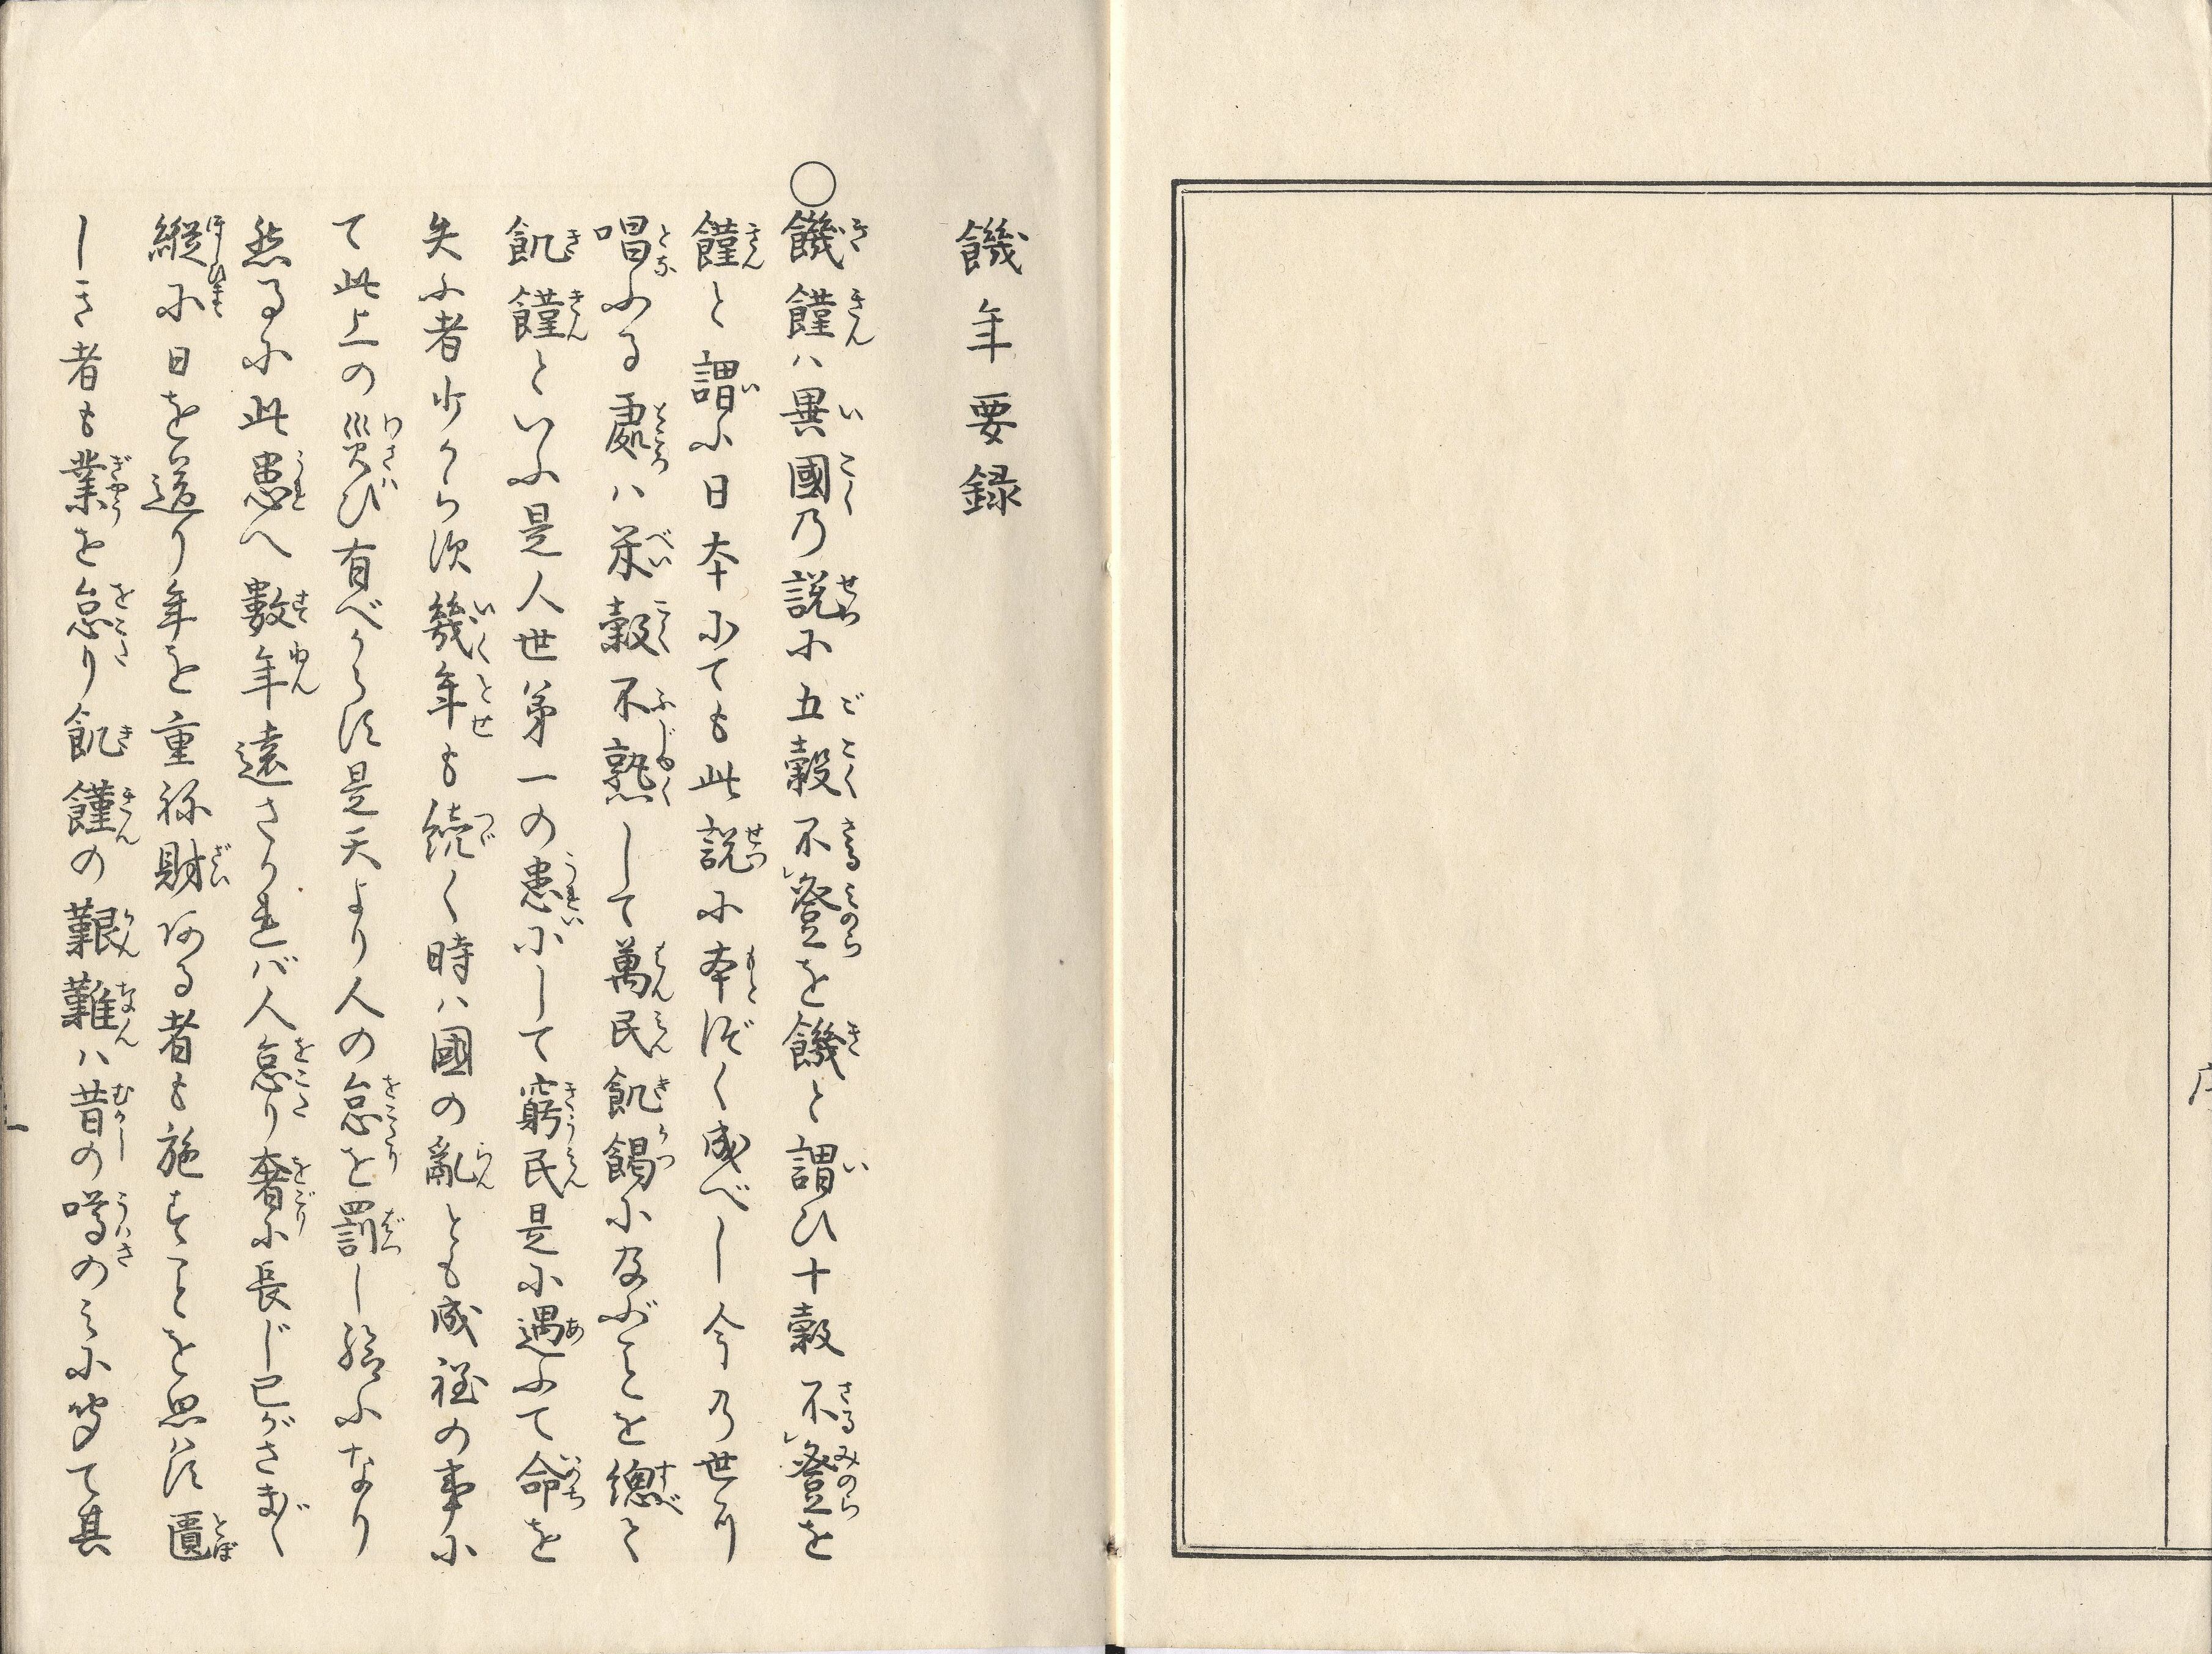 序
饑年要録
○饑饉ハ異國乃説に五穀不登を饑と謂ひ十穀不登を
饉と謂ふ日本にても此説に本づく成べし今乃世に
唱ふる處ハ米穀不熟して萬民飢餲に及ぶことを總て
飢饉といふ是人世第一の患にして窮民是に遇ふて命を
失ふ者少からず幾年も続く時ハ國の亂とも成程の事に
て此上の災び有べからず是天より人の怠を罰し給ふなり
然るに此患へ數年遠ざかれバ人怠り奢に長じ己がさまざま
縦に日を送り年を重ね財ある者も施すことを思ハず匱
しき者も業を怠り飢饉の艱難ハ昔の噂のミに聞て其
一